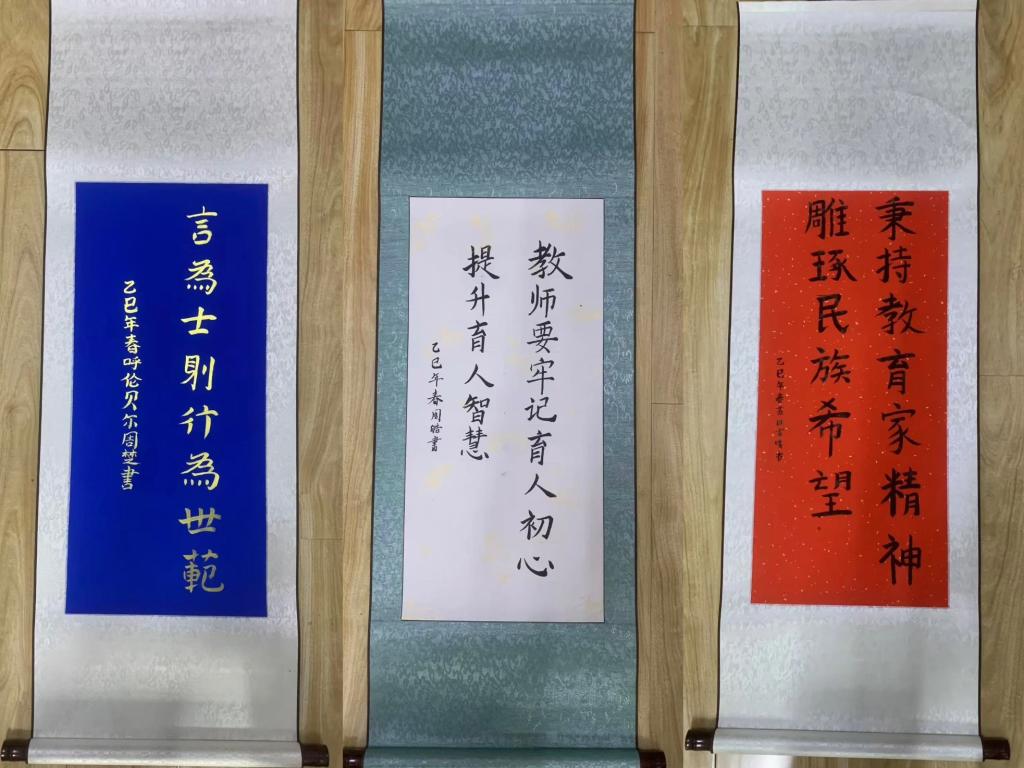 言為士則行為世範
乙巳年春呼伦贝尔周楚書
教师要牢记育人初心
提升育人智慧
乙巳年春周皓書
秉持教育家精神
雕琢民族希望
乙巳年春